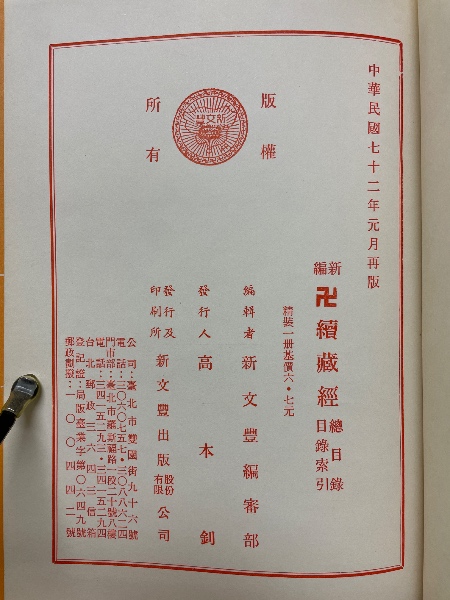 中華民國七十二年元月再版
新編卍續藏經總目錄目錄索引
精裝一册基價六·七元
版權所有
新文豐
編輯者 新文豐編審部
發行人 高本釗
發行及印刷所 新文豐出版股份有限公司
公司：臺北市雙園街九十六號
電話：三〇六〇七五七·三〇八八六二四
門市部：臺北市羅斯福路一段二十號八樓
電話：三四一五二九三·三四一五二九四
台北郵政三六四三信箱
登記證：局版臺業字第〇六四九號
郵政劃撥：一〇〇四四二號